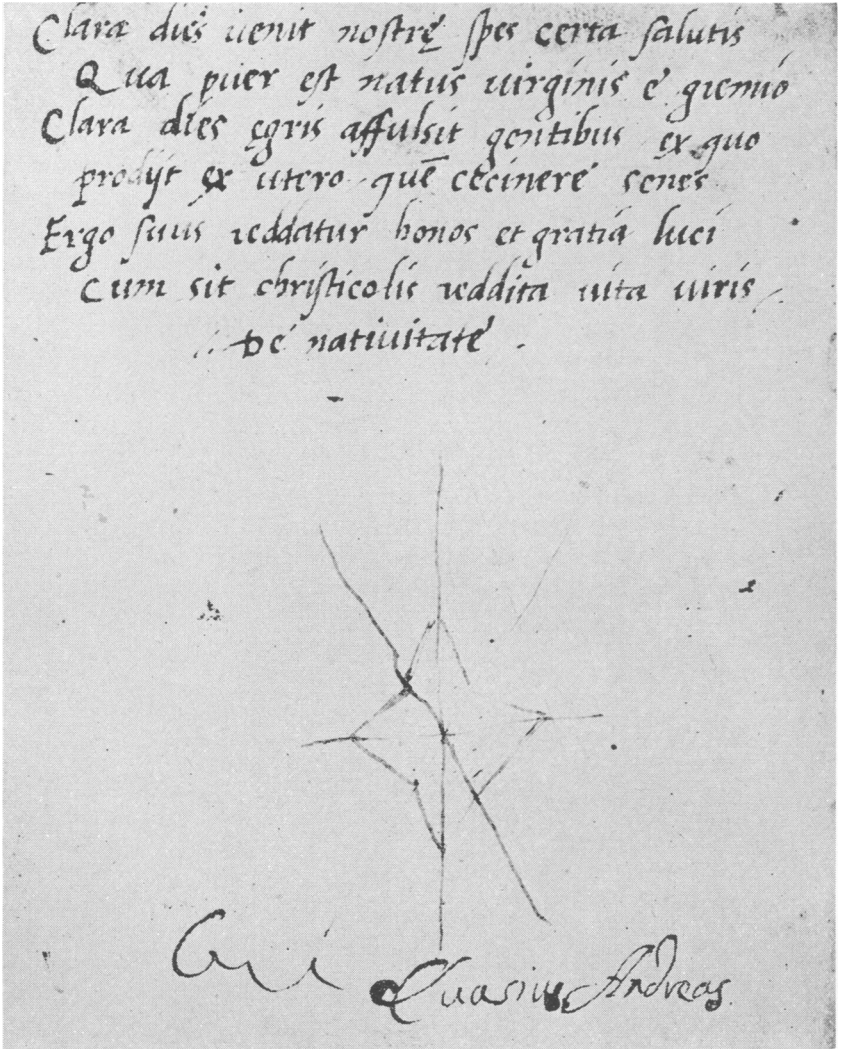 Clara dies uenit nostrę spes certa salutis
Qua puer est natus uirginis e gremio
Clara dies ęgris affulsit gentibus ex quo
prodijt ex utero quē cecinere senes
Ergo suus reddatur honos et gratia luci
Cum sit christicolis reddita uita uiris
De natiuitate
Andreas